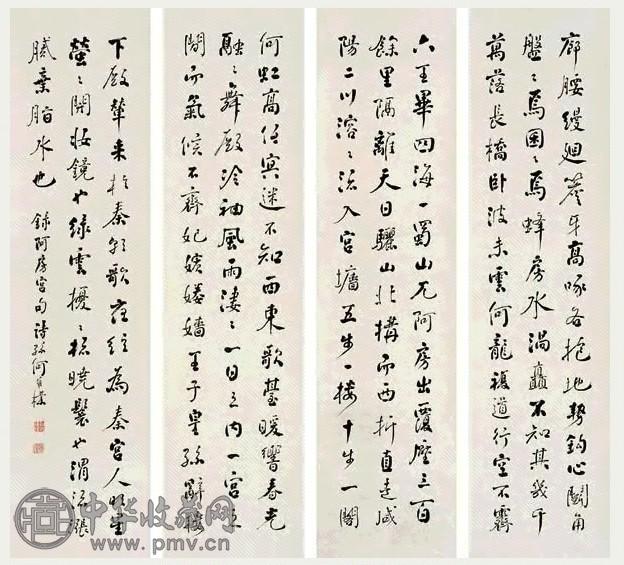 廊腰縵迴簷牙高啄各抱地勢鈎心鬭角
盤〻焉囷〻焉蜂房水渦矗不知其幾千
萬落長橋卧波未雲何龍複道行空不霽
六王畢四海一蜀山兀阿房出覆壓三百
餘里隔離天日驪山北構而西折直走咸
陽二川溶〻流入宮墻五步一樓十步一閣
何虹高低冥迷不知西東歌臺暖響春光
融〻舞殿冷袖風雨淒〻一日之內一宮之
間而氣候不齊妃嬪媵嬙王子皇孫辭樓
下殿輦來於秦朝歌夜絃為秦宮人明星
熒〻開妝鏡也綠雲擾〻梳曉鬟也渭流漲
膩棄脂水也 錄阿房宮句 詩孫何維樸
中华收藏网
www.pmv.cn